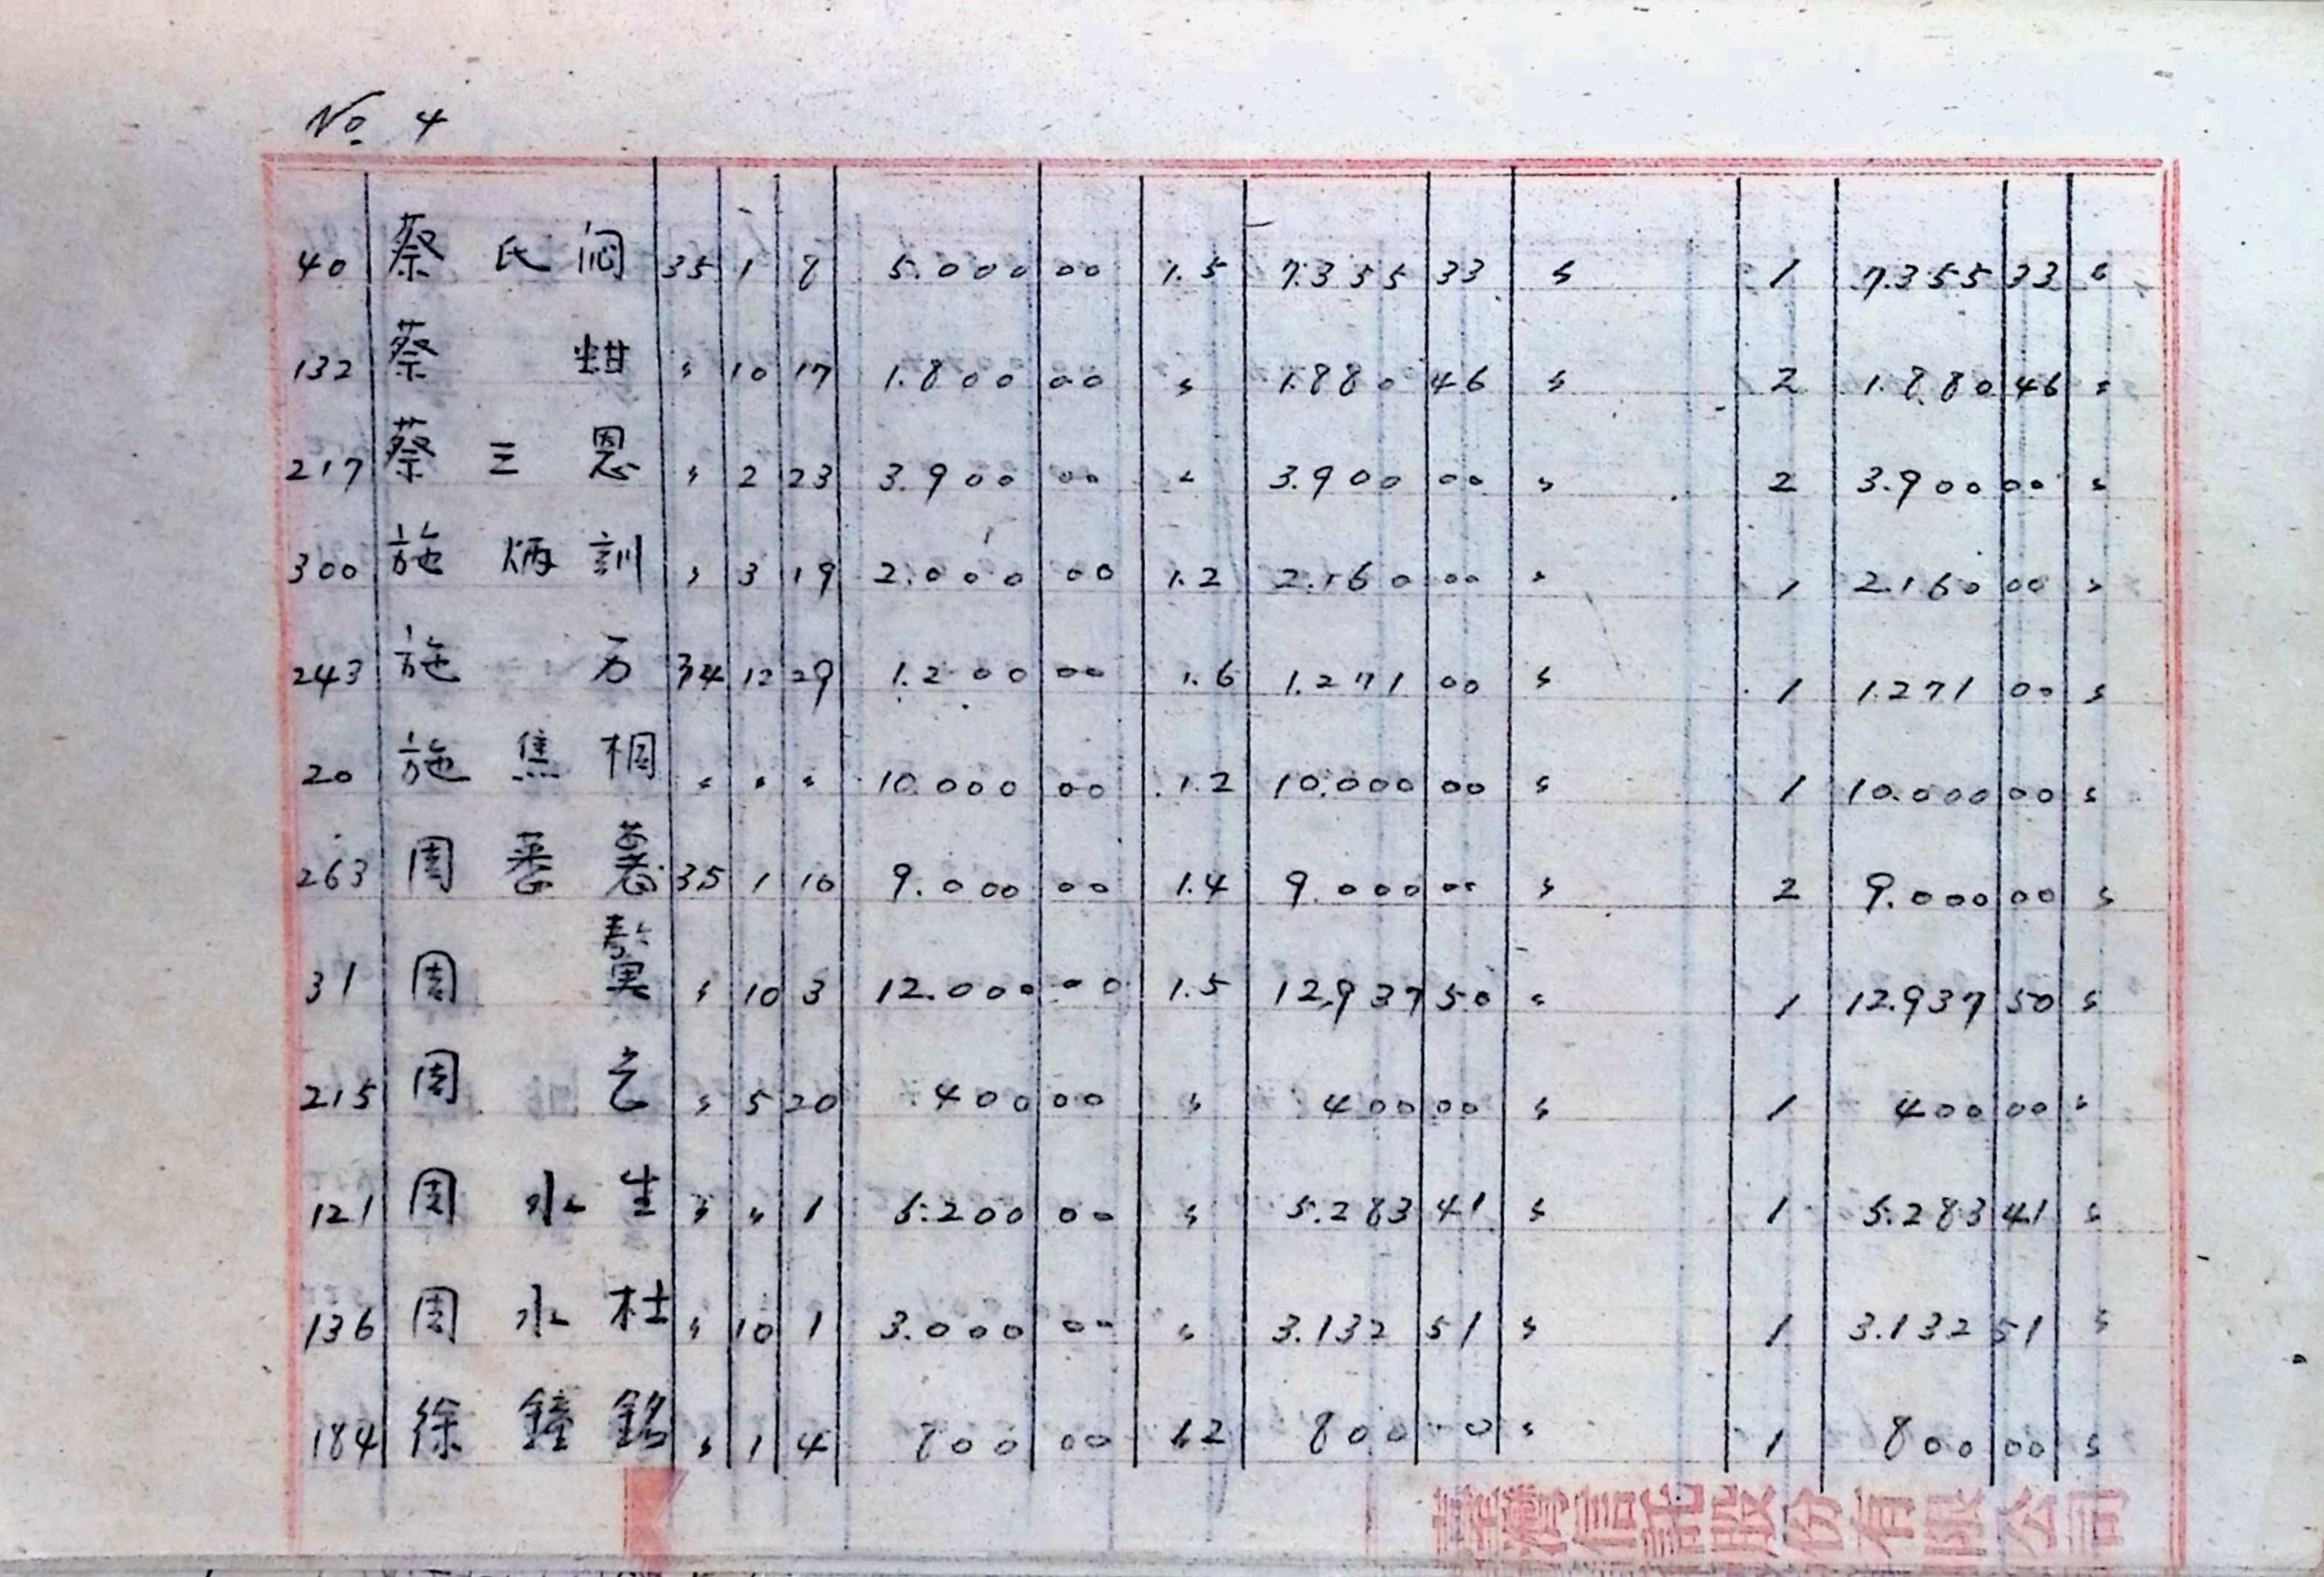 No. 4
40 蔡氏悶 35 1 8 5.000 00 1.5 7.355 33 〃 1 7.355 33 〃
132 蔡蚶 〃 10 17 1.800 00 〃 1.880 46 〃 2 1.880 46 〃
217 蔡三恩 〃 2 23 3.900 00 〃 3.900 00 〃 2 3.900 00 〃
300 施炳訓 〃 3 19 2.000 00 1.2 2.160 00 〃 1 2.160 00 〃
243 施万 34 12 29 1.200 00 1.6 1.271 00 〃 1 1.271 00 〃
20 施焦桐 〃 〃 〃 10.000 00 1.2 10.000 00 〃 1 10.000 00 〃
263 周 35 1 16 9.000 00 1.4 9.000 00 〃 2 9.000 00 〃
31 周 〃 10 3 12.000 00 1.5 12.937 50 〃 1 12.937 50 〃
215 周乞 〃 5 20 400 00 〃 400 00 〃 1 400 00 〃
121 周水生 〃 〃 1 5.200 00 〃 5.283 41 〃 1 5.283 41 〃
136 周水杜 〃 10 1 3.000 00 〃 3.132 51 〃 1 3.132 51 〃
184 徐鐘銘 〃 1 4 800 00 1.2 800 00 〃 1 800 00 〃
臺灣信託股份有限公司